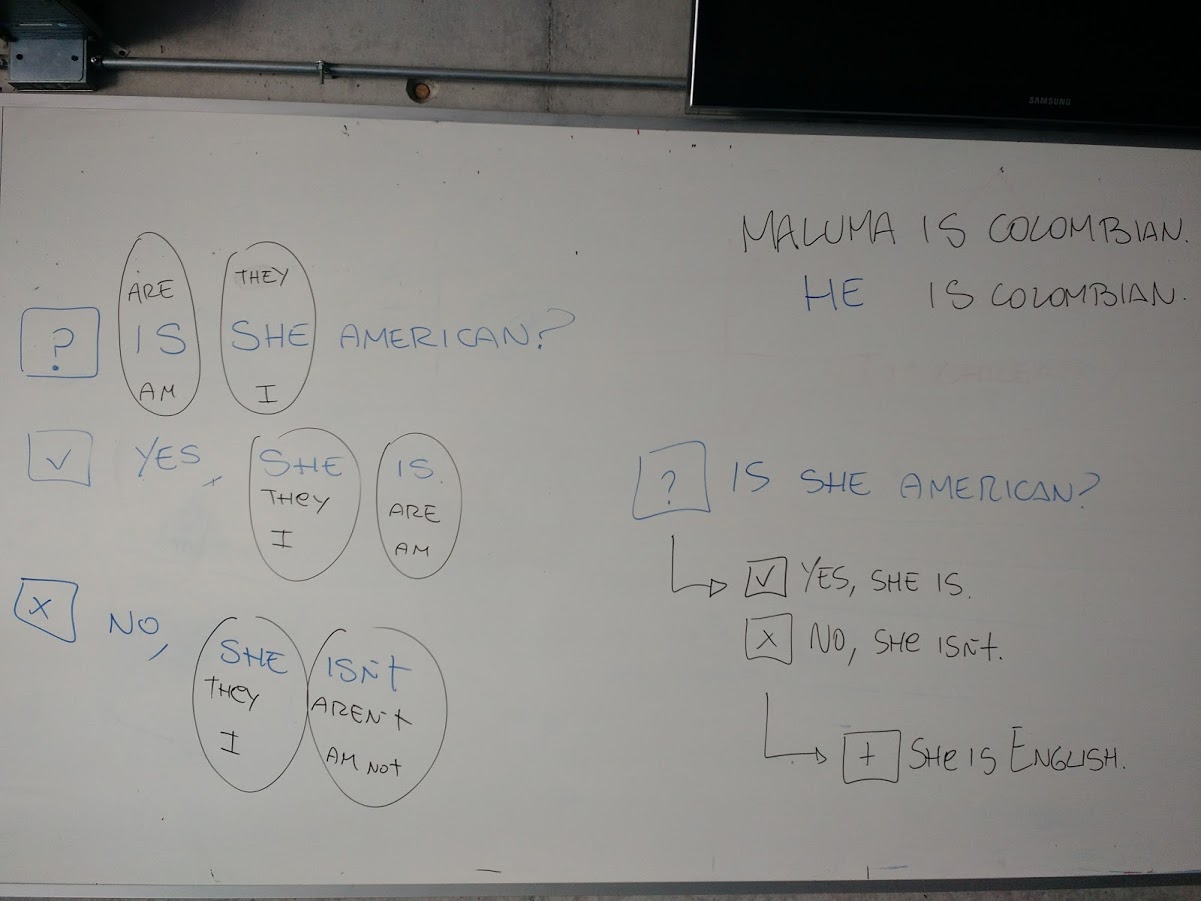 SAMSUNG
MALUMA IS COLOMBIAN.
HE IS COLOMBIAN.
ARE THEY
? IS SHE AMERICAN?
AM I
✓ YES, SHE IS.
THEY ARE
I AM
X NO, SHE ISN't
THEY AREN't
I AM NOt
? IS SHE AMERICAN?
✓ YES, SHE IS.
X NO, SHE ISN't.
+ SHE IS ENGLISH.